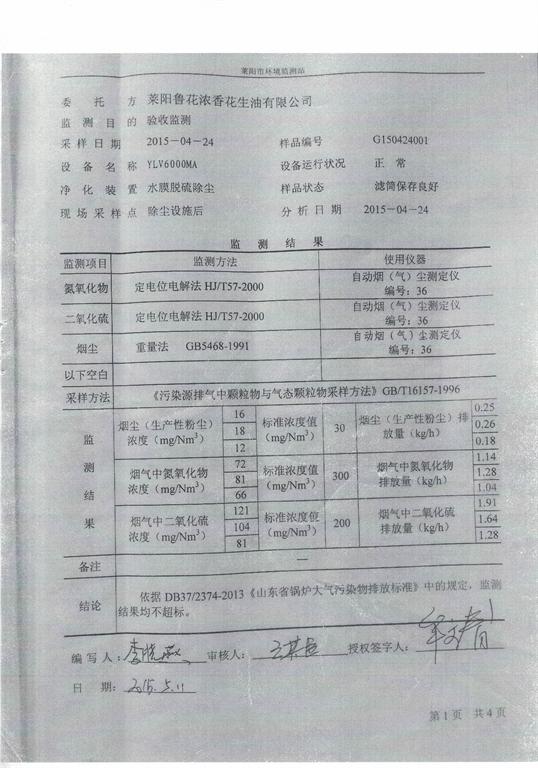 莱阳市环境监测站
委托方 莱阳鲁花浓香花生油有限公司
监测目的 验收监测
采样日期 2015－04－24 样品编号 G150424001
设备名称 YLV6000MA 设备运行状况 正常
净化装置 水膜脱硫除尘 样品状态 滤筒保存良好
现场采样点 除尘设施后 分析日期 2015－04－24
监测结果
监测项目 监测方法 使用仪器
氮氧化物 定电位电解法 HJ/T57-2000 自动烟（气）尘测定仪
编号：36
二氧化硫 定电位电解法 HJ/T57-2000 自动烟（气）尘测定仪
编号：36
烟尘 重量法 GB5468-1991 自动烟（气）尘测定仪
编号：36
以下空白
采样方法 《污染源排气中颗粒物与气态颗粒物采样方法》GB/T16157-1996
监测结果
烟尘（生产性粉尘）
浓度（mg/Nm³）
16
18
12
标准浓度值
（mg/Nm³）
30
烟尘（生产性粉尘）排
放量（kg/h）
0.25
0.26
0.18
烟气中氮氧化物
浓度（mg/Nm³）
72
81
66
标准浓度值
（mg/Nm³）
300
烟气中氮氧化物
排放量（kg/h）
1.14
1.28
1.04
烟气中二氧化硫
浓度（mg/Nm³）
121
104
81
标准浓度值
（mg/Nm³）
200
烟气中二氧化硫
排放量（kg/h）
1.91
1.64
1.28
备注 —
结论 依据 DB37/2374-2013《山东省锅炉大气污染物排放标准》中的规定，监测
结果均不超标。
编写人： 审核人： 授权签字人：
日期：2015.5.11
第1页 共4页